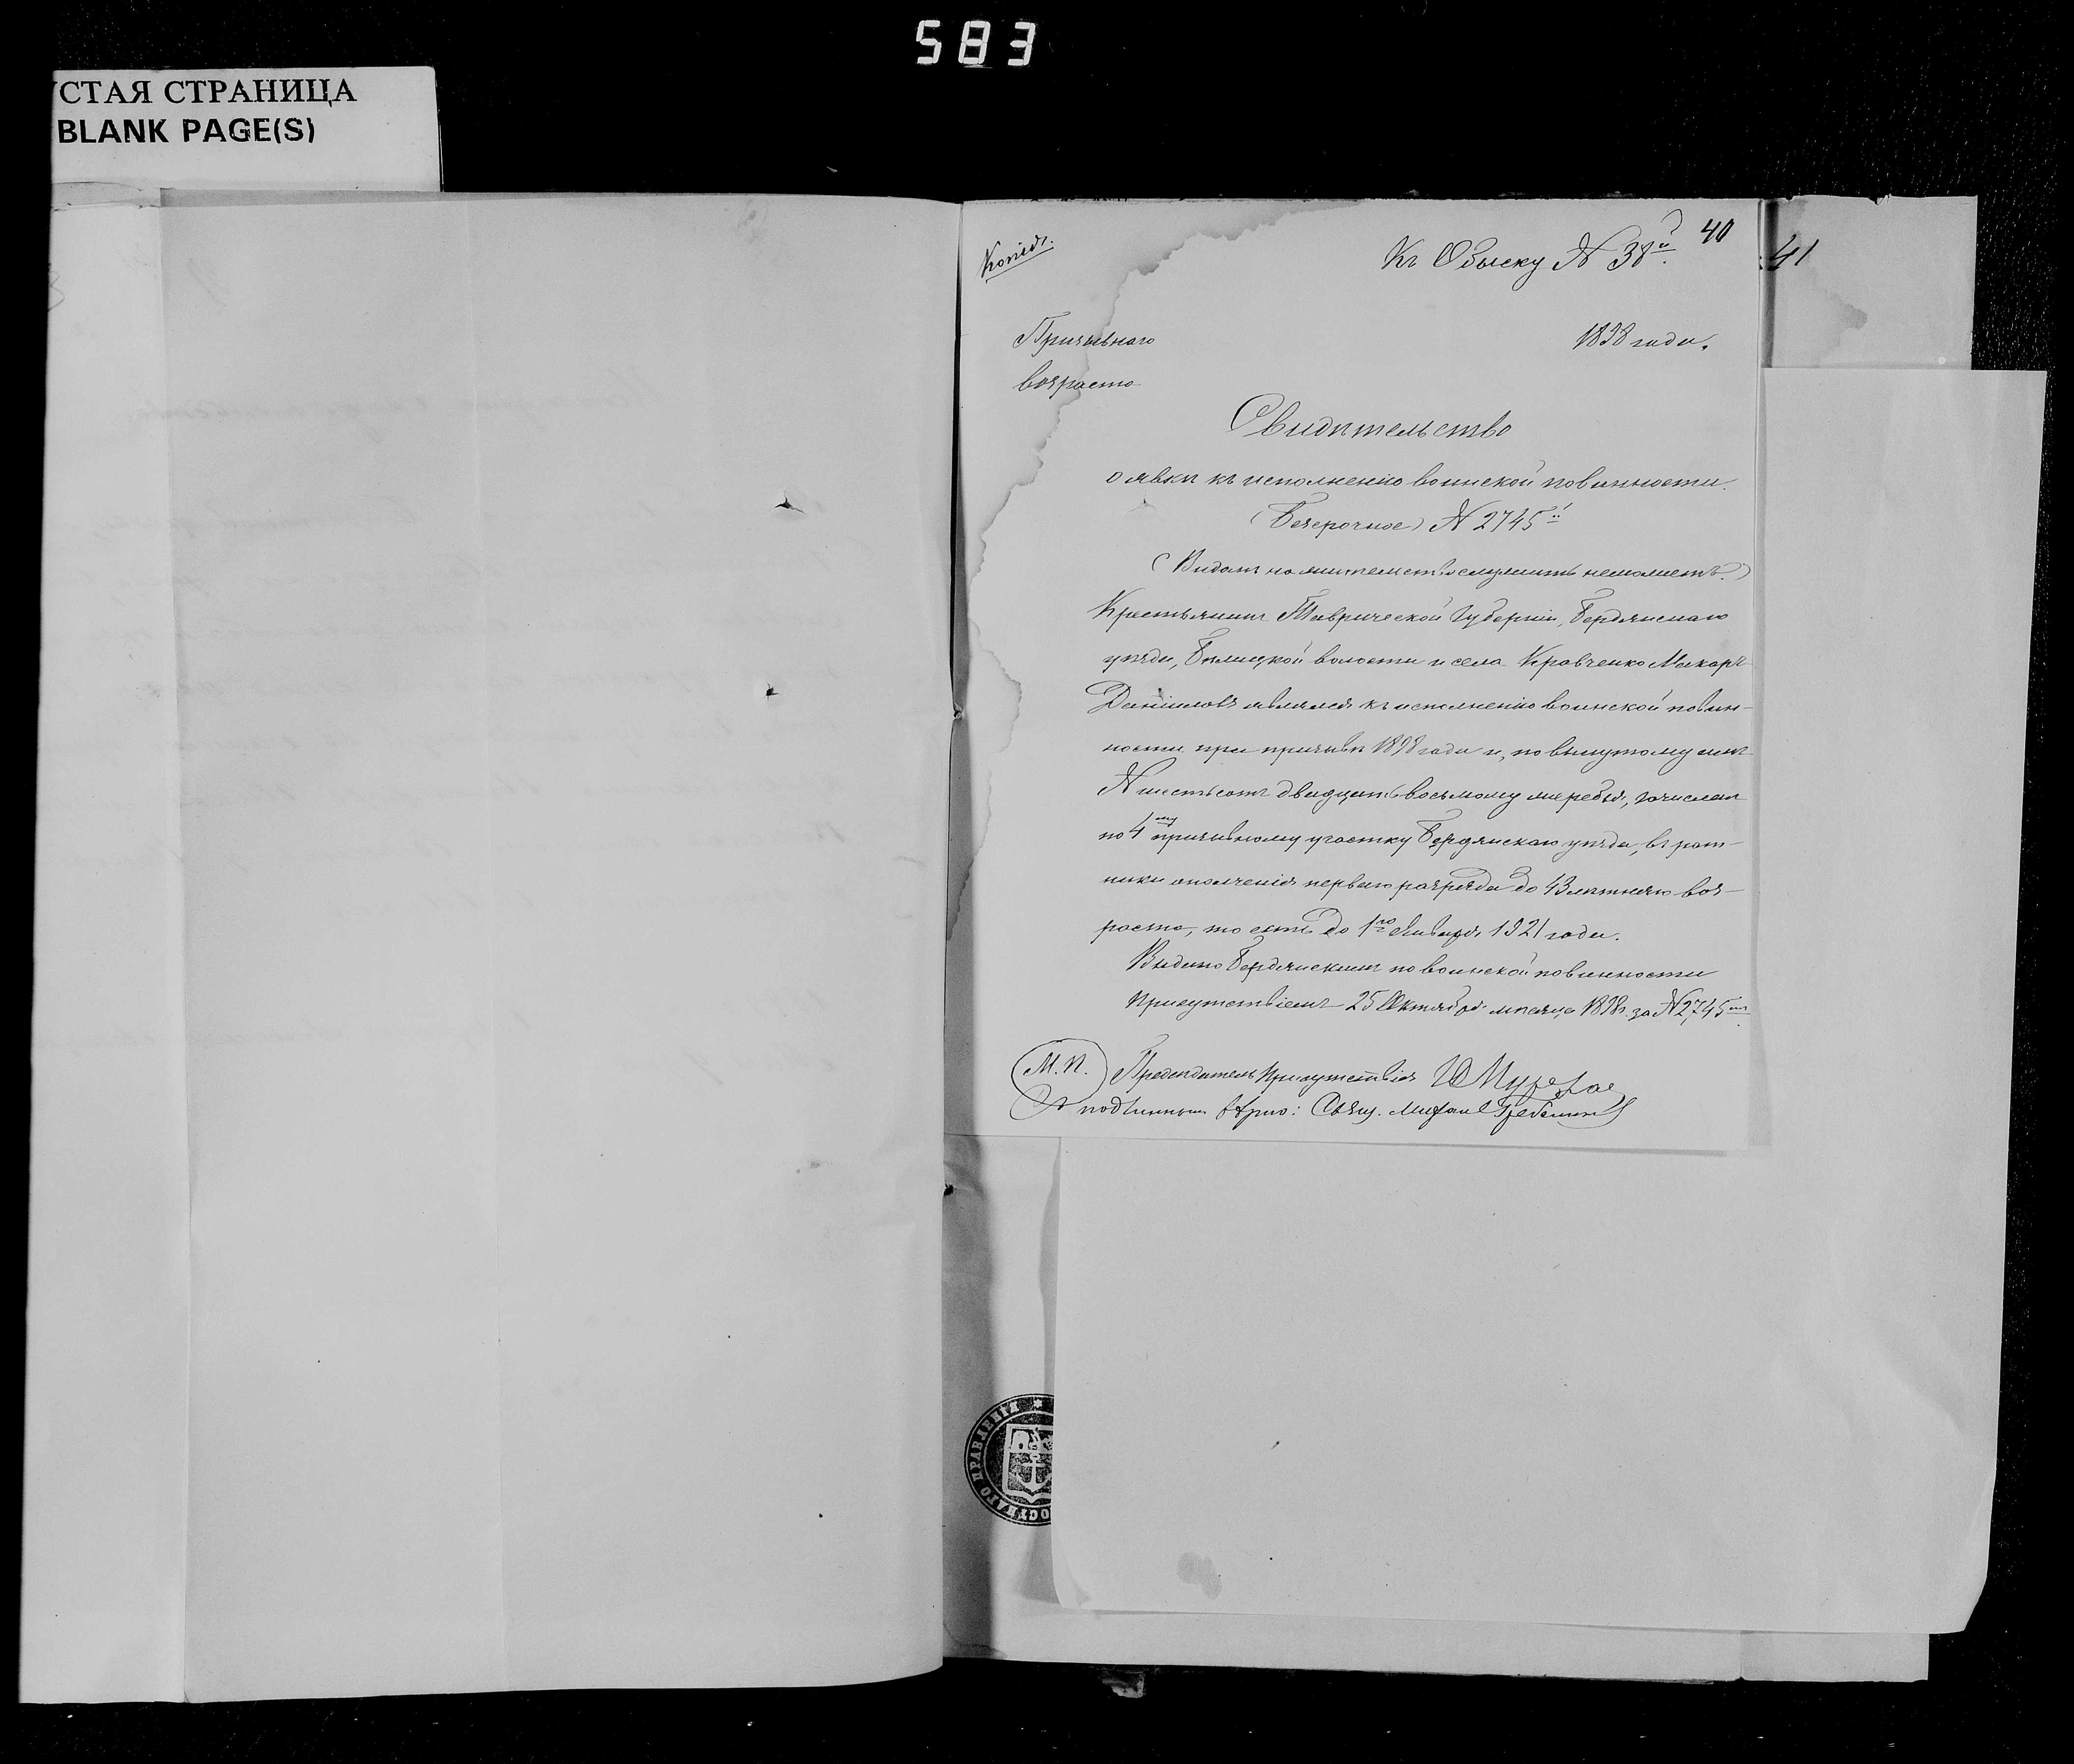 583
УСТАЯ СТРАНИЦА
BLANK PAGE(S)
Копія.
Къ Обыску № 38й.
40
41
Призывнаго
возраста
1898 года.
Свидѣтельство
о явкѣ къ исполненію воинской повинности.
(Безсрочное) № 2745й
(Видомъ на жительство служить не можетъ.)
Крестьянинъ Таврической Губерніи, Бердянскаго
уѣзда, волости и села Кравченко Макаръ
Даніиловъ являлся къ исполненію воинской повин-
ности при призывѣ 1898 года и, по вынутому имъ
№ шестьсотъ двадцать восьмому жеребья, зачисленъ
по 4му призывному участку Бердянскаго уѣзда, въ рат-
ники ополченія перваго разряда до 43 лѣтняго воз-
раста, то есть до 1го Января 1921 года.
Выдано Бердянскимъ по воинской повинности
Присутствіемъ 25 Октября мѣсяца 1898 г. за № 2,745мъ.
М. П. Предсѣдатель Присутствія
Съ подлиннымъ вѣрно: Свящ. Михаилъ
ОСТНАГО ПРАВЛЕНІЯ